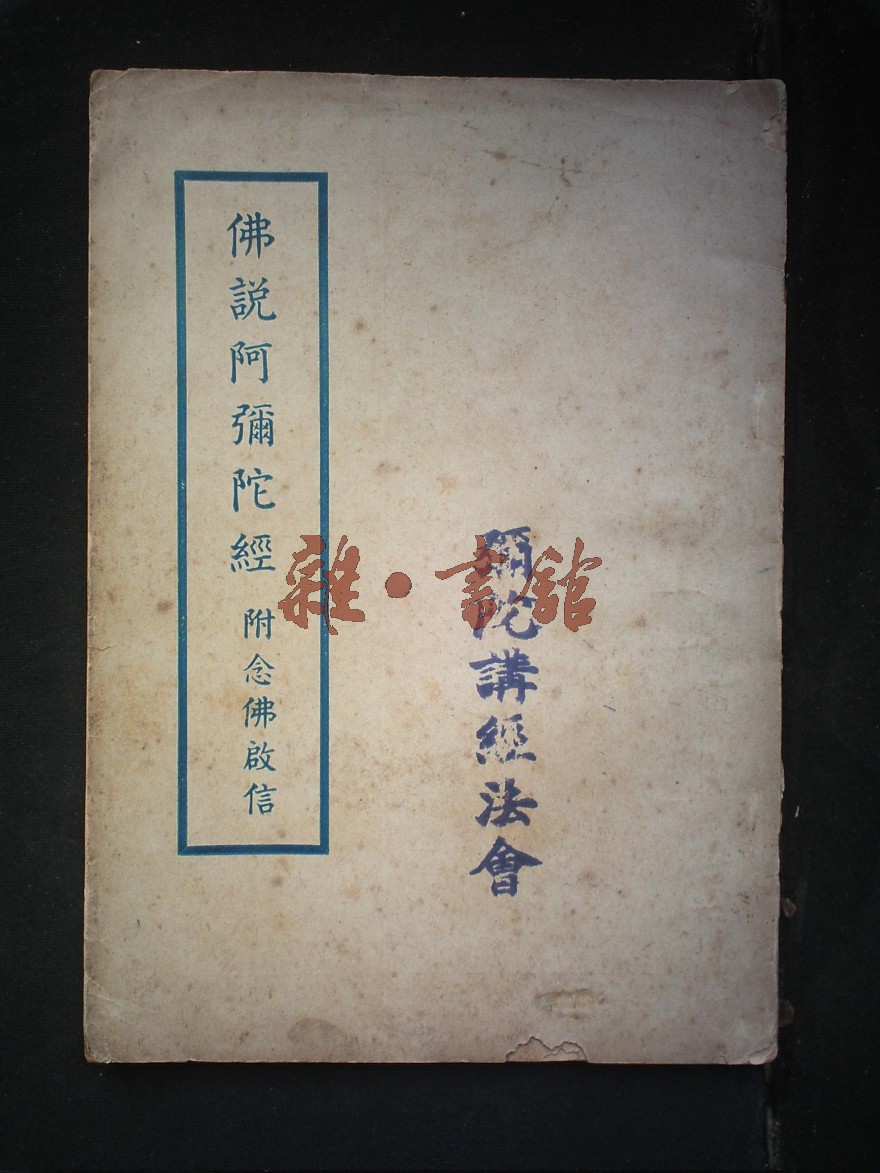 彌陀講經法會
佛説阿彌陀經 附念佛啟信
雜·書舘